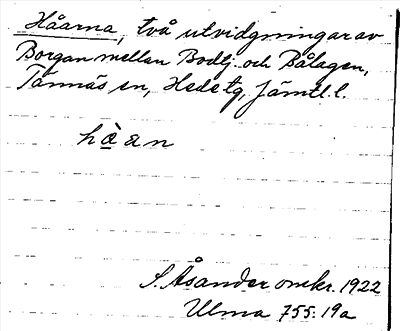 Håarna, två utvidgningar av
Borgan mellan Bodlj. och Bålagen,
Tännäs sn, Hede tg, Jämtl. l.
hàan
S. Åsander omkr. 1922
Ulma 755. 19a